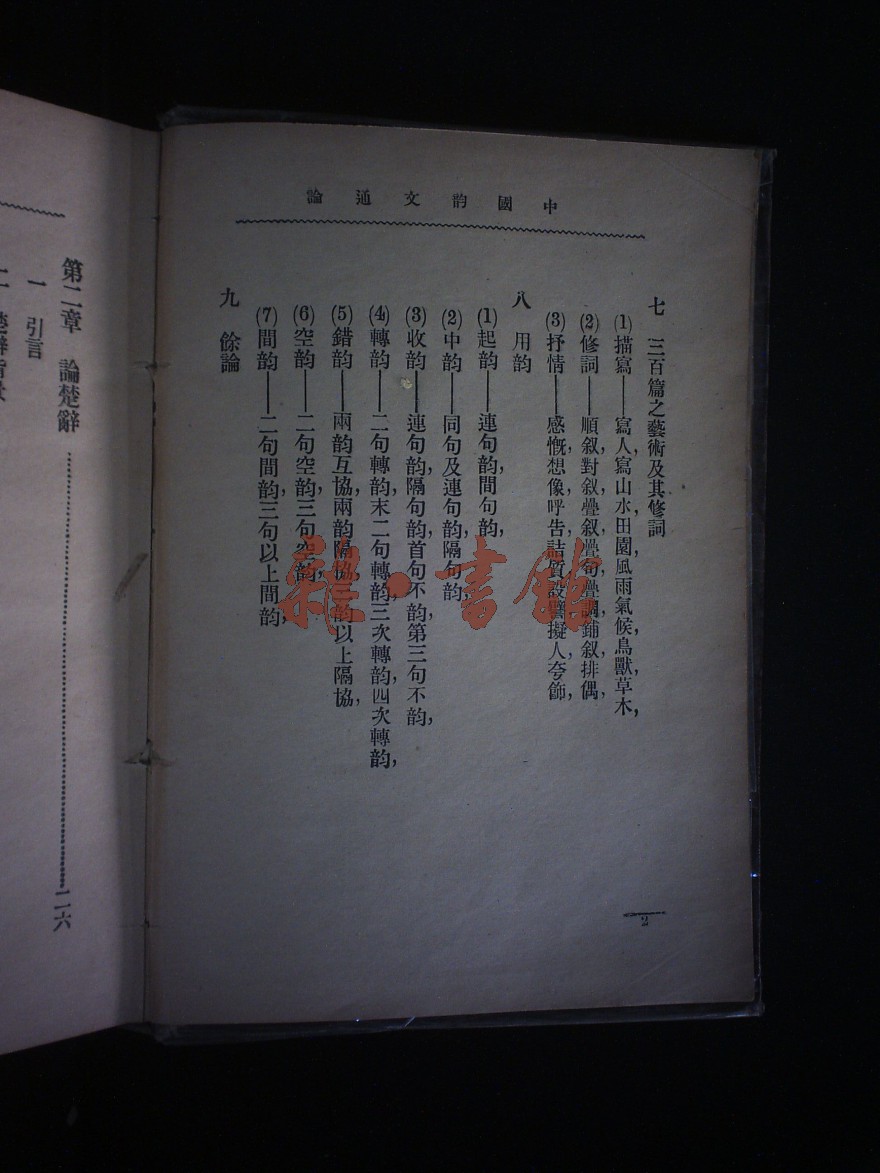 中國韵文通論
七 三百篇之藝術及其修詞
(1)描寫——寫人,寫山水田園,風雨氣候,鳥獸草木,
(2)修詞——順叙,對叙,疊叙,疊句,疊調,鋪叙,排偶,
(3)抒情——感慨,想像,呼告,詰質,設譬,擬人,夸飾,
八 用韵
(1)起韵——連句韵,間句韵,
(2)中韵——同句及連句韵,隔句韵,
(3)收韵——連句韵,隔句韵,首句不韵,第三句不韵,
(4)轉韵——二句轉韵,末二句轉韵,三次轉韵,四次轉韵,
(5)錯韵——兩韵互協,兩韵隔協,三韵以上隔協,
(6)空韵——二句空韵,三句空韵,
(7)間韵——二句間韵,三句以上間韵,
九 餘論
2
第二章 論楚辭……二六
一 引言
二 楚辭
雜·書館